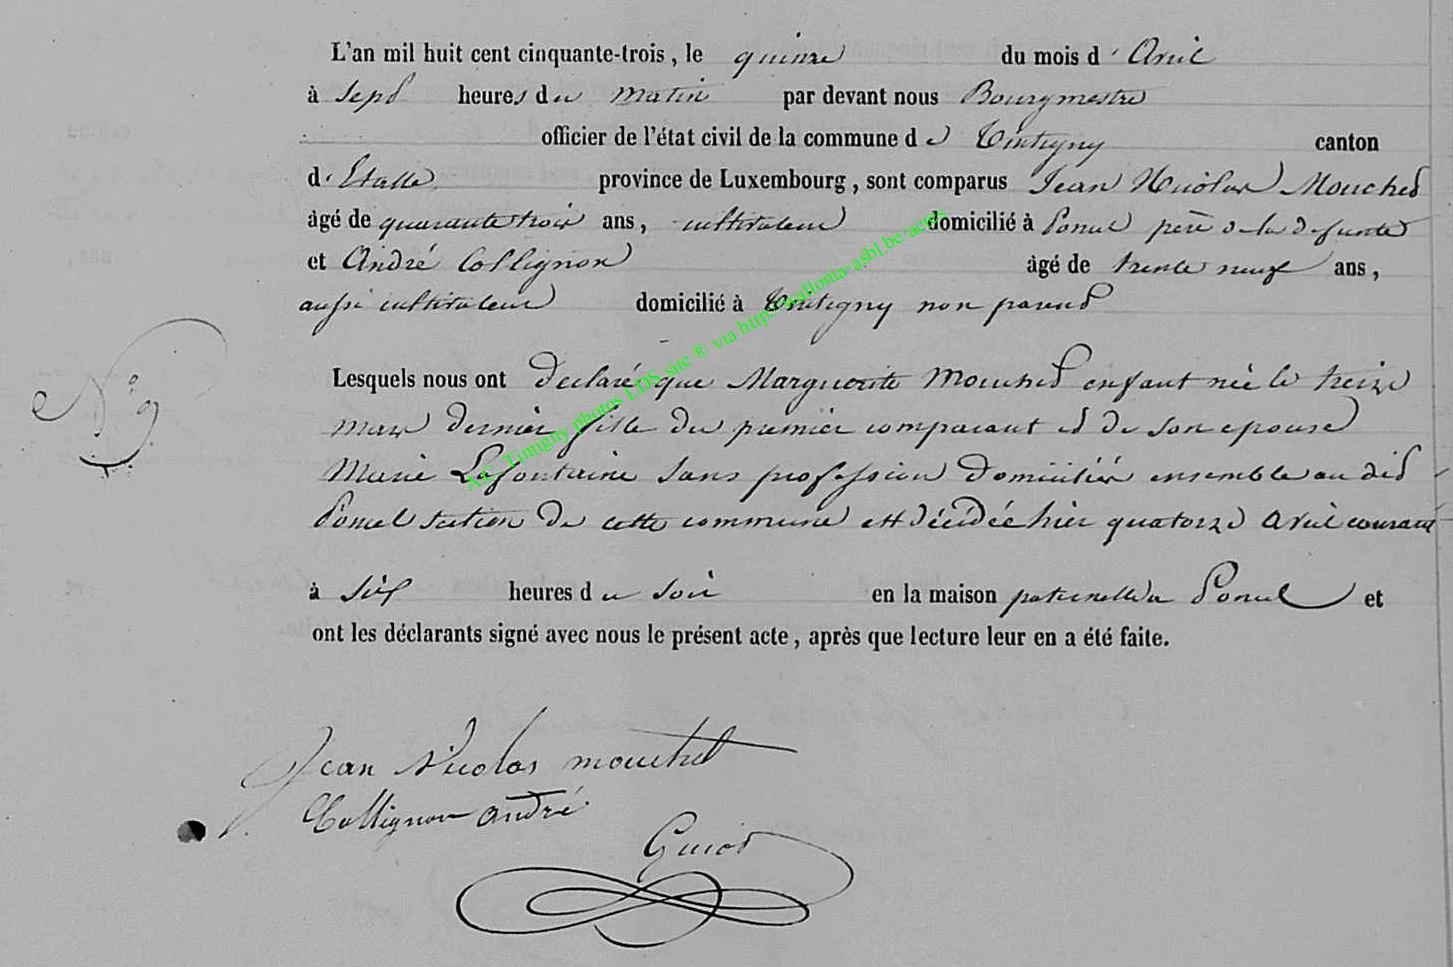 L'an mil huit cent cinquante-trois, le quinze du mois d'Avril
à sept heures du matin par devant nous Bourgmestre
officier de l'état civil de la commune de Tintigny canton
d'Etalle province de Luxembourg, sont comparus Jean Nicolas Mouchet
âgé de quarante trois ans, cultivateur domicilié à Poncel père de la defunte
et André Collignon âgé de trente neuf ans,
aussi cultivateur domicilié à Tintigny non parent
N° 9
Lesquels nous ont declaré que Marguerite Mouchet enfant née le treize
mars dernier fille du premier comparant et de son epouse
Marie Lafontaine sans profession domiciliés ensemble au dit
Poncel section de cette commune est décédée hier quatorze avril courant
à six heures du soir en la maison paternelle a Poncel et
ont les déclarants signé avec nous le présent acte, après que lecture leur en a été faite.
Jean Nicolas mouchet
Collignon andré
Guiot
A.C. Tintigny photos LDS site ® via http://wallonia-asbl.be/actes